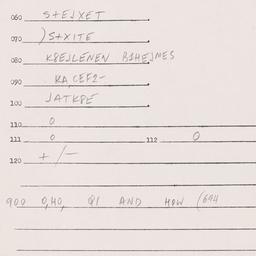 060 STEJXET
070 )STXITE
080 KREJLENEN BIHEJMES
090 KA,CEF2-
100 JATKPE
110 0
111 0 112 0
120 +/-
900 0,40, Q1 AND HOW (694